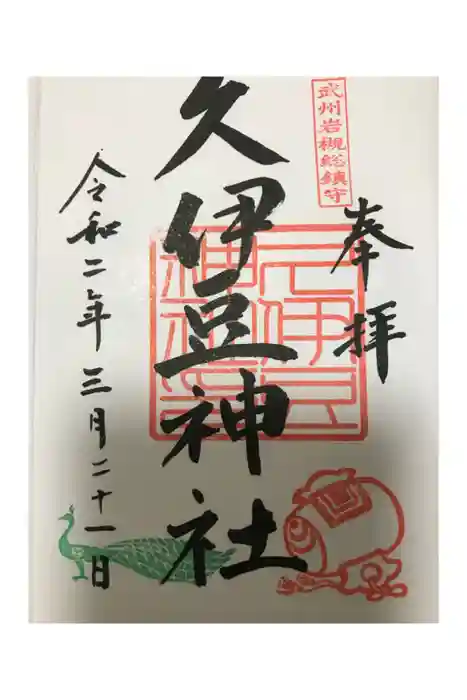 武州岩槻総鎮守
奉拝
久伊豆神社
久伊豆
神社印
令和二年三月二十一日